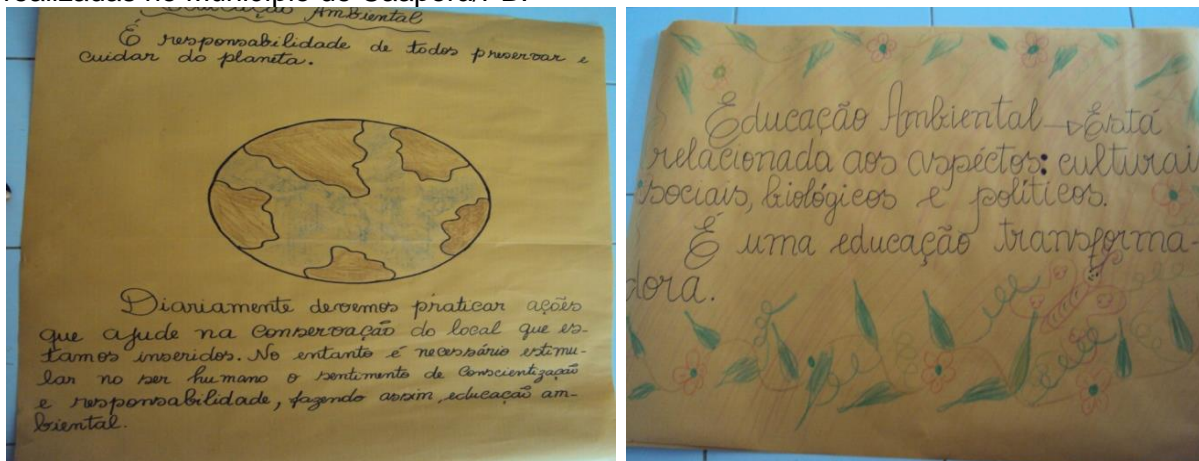 realizadas no Município de Caaporã/PB.
Educação Ambiental
É responsabilidade de todos preservar e
cuidar do planeta.
Diariamente devemos praticar ações
que ajude na conservação do local que es-
tamos inseridos. No entanto é necessário estimu-
lar no ser humano o sentimento de conscientização
e responsabilidade, fazendo assim, educação am-
biental.
Educação Ambiental → Está
relacionada aos aspéctos: culturai
sociais, biológicos e políticos.
É uma educação transforma-
dora.